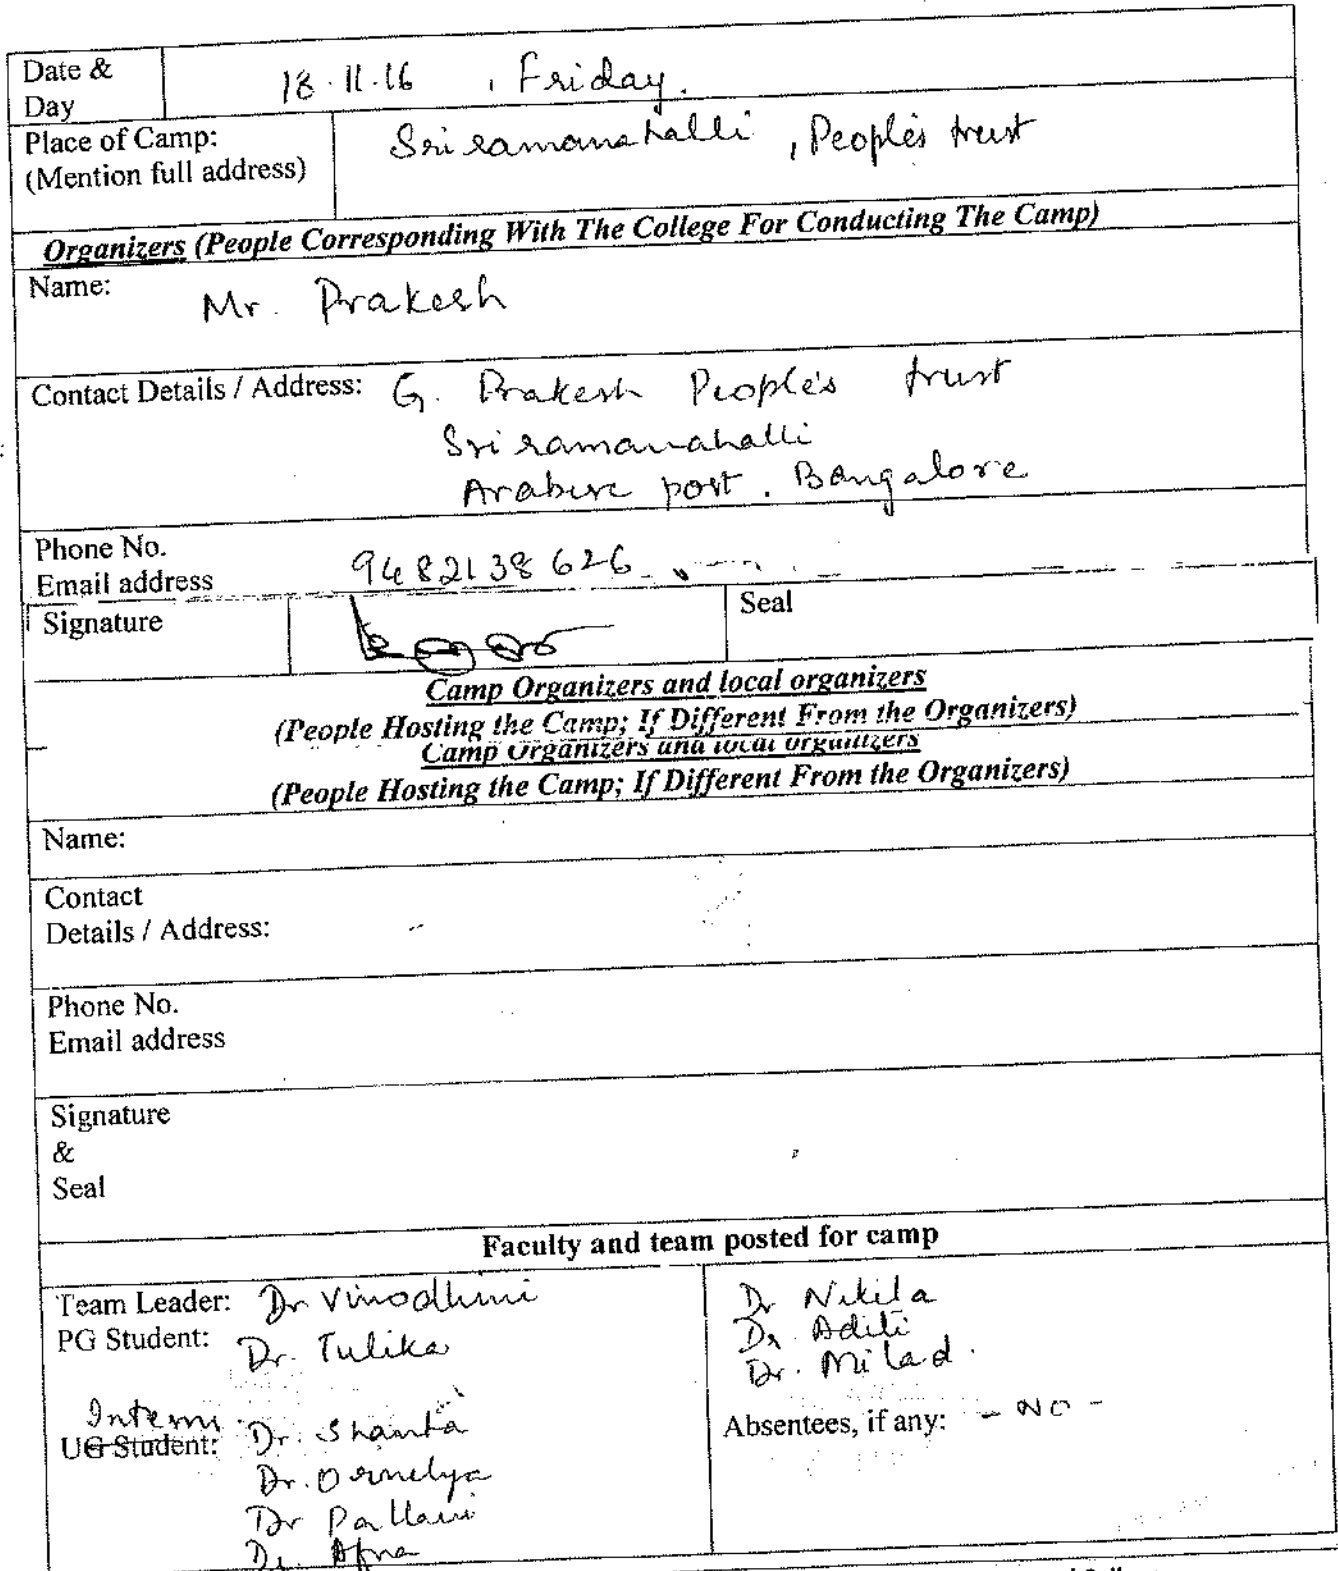 Date & Day 18.11.16 , Friday.
Place of Camp: (Mention full address) Sriramanahalli , People's trust
Organizers (People Corresponding With The College For Conducting The Camp)
Name: Mr. Prakesh
Contact Details / Address: G. Prakesh People's trust
Sriramanahalli
Arabere post. Bangalore
Phone No.
Email address 9482138626
Signature
Seal
Camp Organizers and local organizers
(People Hosting the Camp; If Different From the Organizers)
Camp Organizers and local organizers
(People Hosting the Camp; If Different From the Organizers)
Name:
Contact
Details / Address:
Phone No.
Email address
Signature
&
Seal
Faculty and team posted for camp
Team Leader: Dr Vinodhini
PG Student: Dr. Tulika
Interns
UG Student: Dr. Shanta
Dr. Ornelya
Dr Pallavi
Dr. Afna
Dr Nikila
Dr. Aditi
Dr. Milad.
Absentees, if any: - NO -